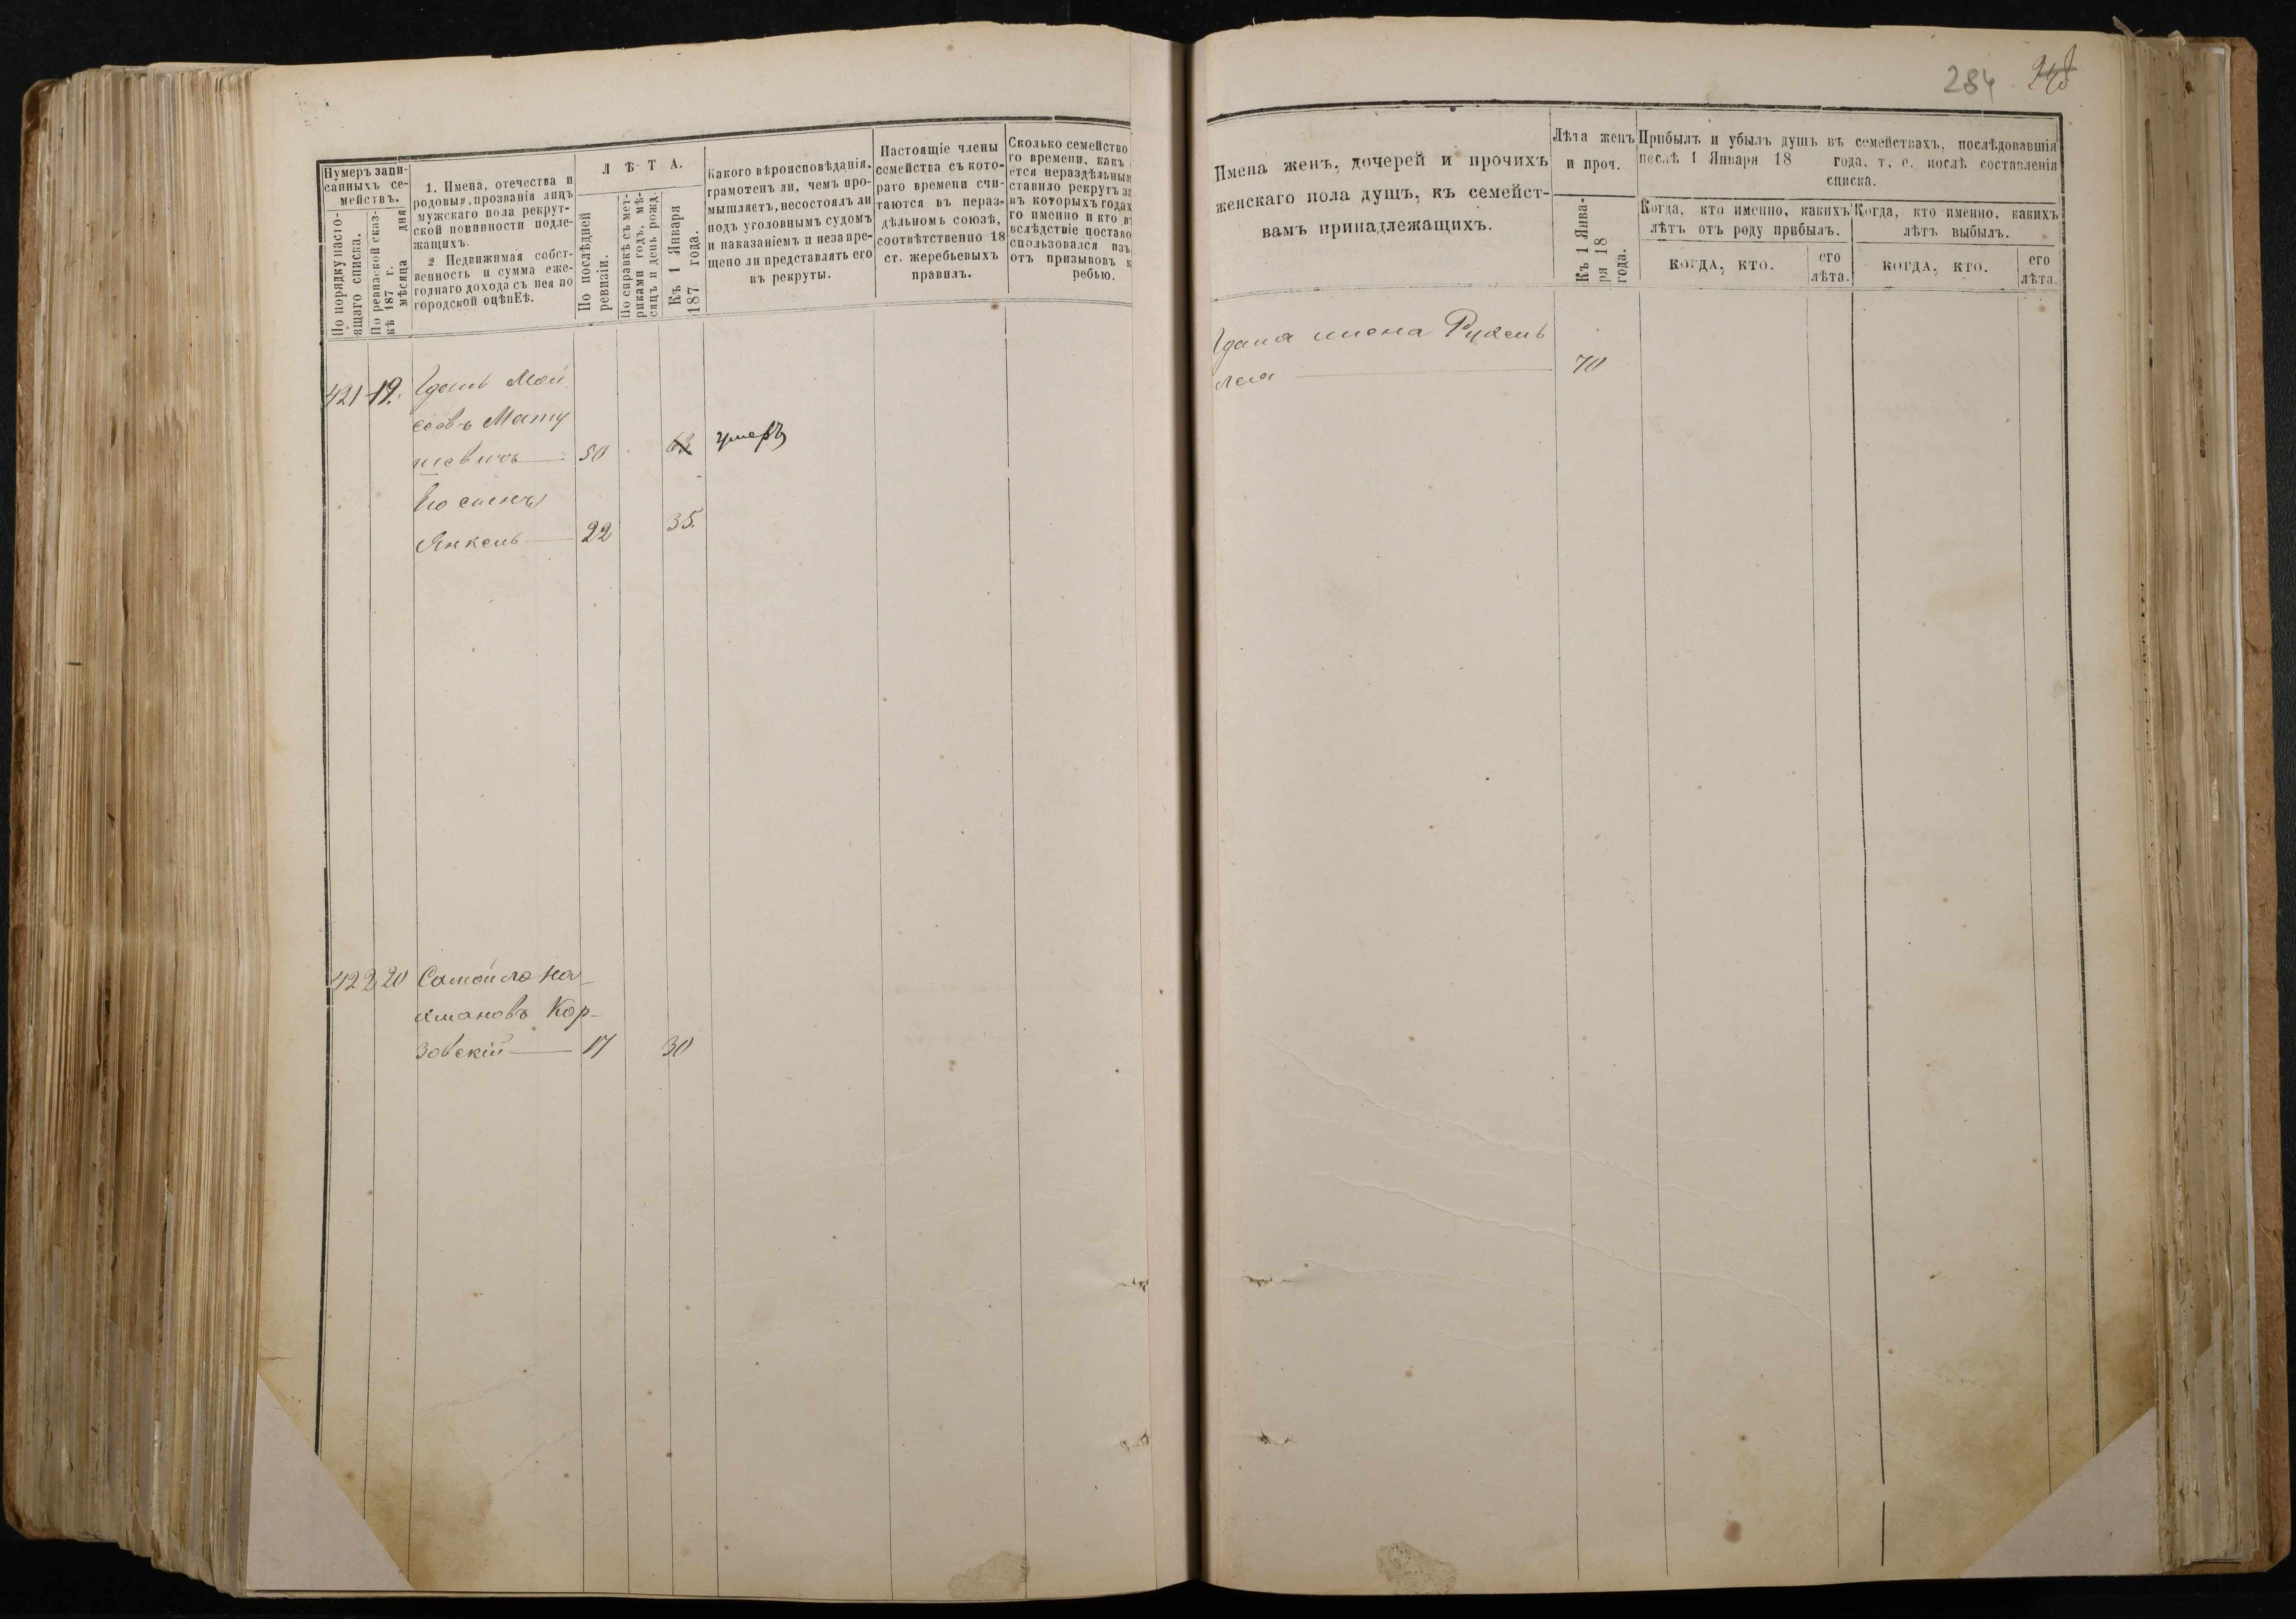 284
Нумеръ запи-
санныхъ се-
мействъ.
По порядку насто-
ящаго списка.
По ревизской сказ-
кѣ 187 г.
мѣсяца дня
1. Имена, отечества и
родовыя, прозванія лицъ
мужскаго пола рекрут-
ской повинности подле-
жащихъ.
2. Недвижимая собст-
венность и сумма еже-
годнаго дохода съ нея по
городской оцѣнЕѣ.
ЛѢТА.
По послѣдней
ревизіи.
По справкѣ съ мет-
риками годъ, мѣ-
сяцъ и день рожд.
Къ 1 Января
187 года.
Какого вѣроисповѣданія,
грамотенъ ли, чемъ про-
мышляетъ, несостоялъ ли
подъ уголовнымъ судомъ
и наказаніемъ и незапре-
щено ли представлять его
въ рекруты.
Настоящіе члены
семейства съ кото-
раго времени счи-
таются въ нераз-
дѣльномъ союзѣ,
соотвѣтственно 18
ст. жеребьевыхъ
правилъ.
Сколько семейство
го времени, какъ
ется нераздѣльным
ставило рекрутъ за
въ которыхъ годах
го именно и кто в
вслѣдствіе поставо
спользовался изъ
отъ призывовъ к
ребью.
Имена женъ, дочерей и прочихъ
женскаго пола душъ, къ семейст-
вамъ принадлежащихъ.
Лѣта женъ
и проч.
Къ 1 Янва-
ря 18
года.
Прибылъ и убылъ душъ въ семействахъ, послѣдовавшія
послѣ 1 Января 18 года, т. е. послѣ составленія
списка.
Когда, кто именно, какихъ
лѣтъ отъ роду прибылъ.
КОГДА, КТО.
его
лѣта.
Когда, кто именно, какихъ
лѣтъ выбылъ.
КОГДА, КТО.
его
лѣта.
421 19. Мой
совъ Мату
шевичъ 50 63 умеръ
Янкель 22 35.
жена
70
422 20 Самойло На-
хмановъ Кор-
зовскій 17 30